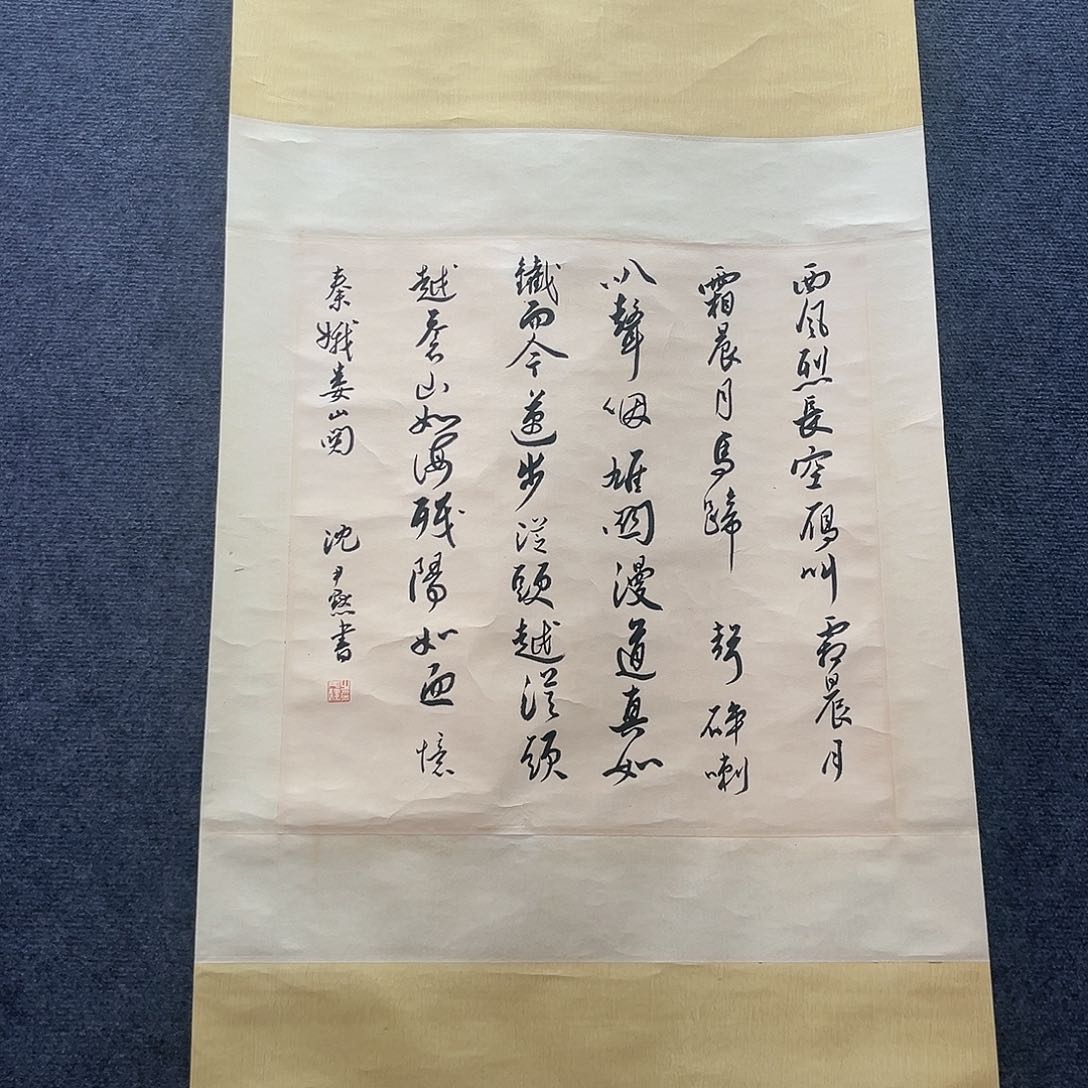 西風烈長空雁叫霜晨月
霜晨月馬蹄聲碎喇
叭聲咽雄關漫道真如
鐵而今邁步從頭越從頭
越蒼山如海殘陽如血 憶
秦娥婁山關 沈尹默書